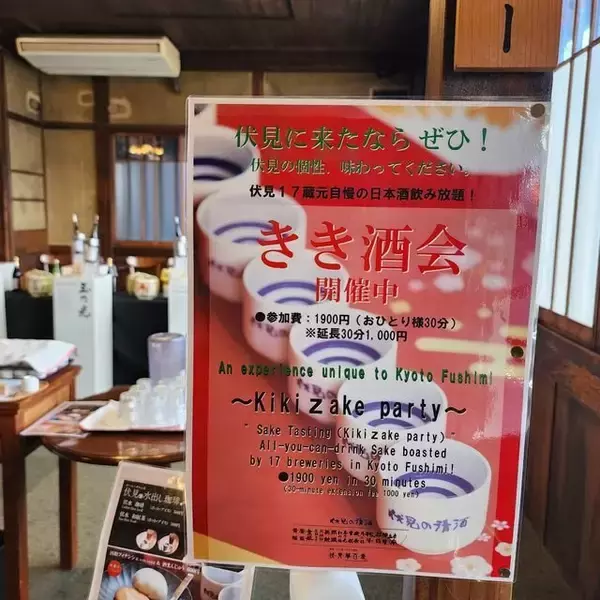 一
伏見に来たなら ぜひ！
伏見の個性、味わってください。
伏見17蔵元自慢の日本酒飲み放題！
きき酒会
開催中
●参加費：1900円（おひとり様30分）
※延長30分1,000円
An experience unique to Kyoto Fushimi
～Kikizake party～
- Sake Tasting (Kikizake party) -
All-you-can-drink Sake boasted
by 17 breweries in Kyoto Fushimi!
●1900 yen in 30 minutes
(30-minute extension fee 1000 yen)
伏見の清酒
伏見の清酒
玉乃光
伏見の水出し珈琲